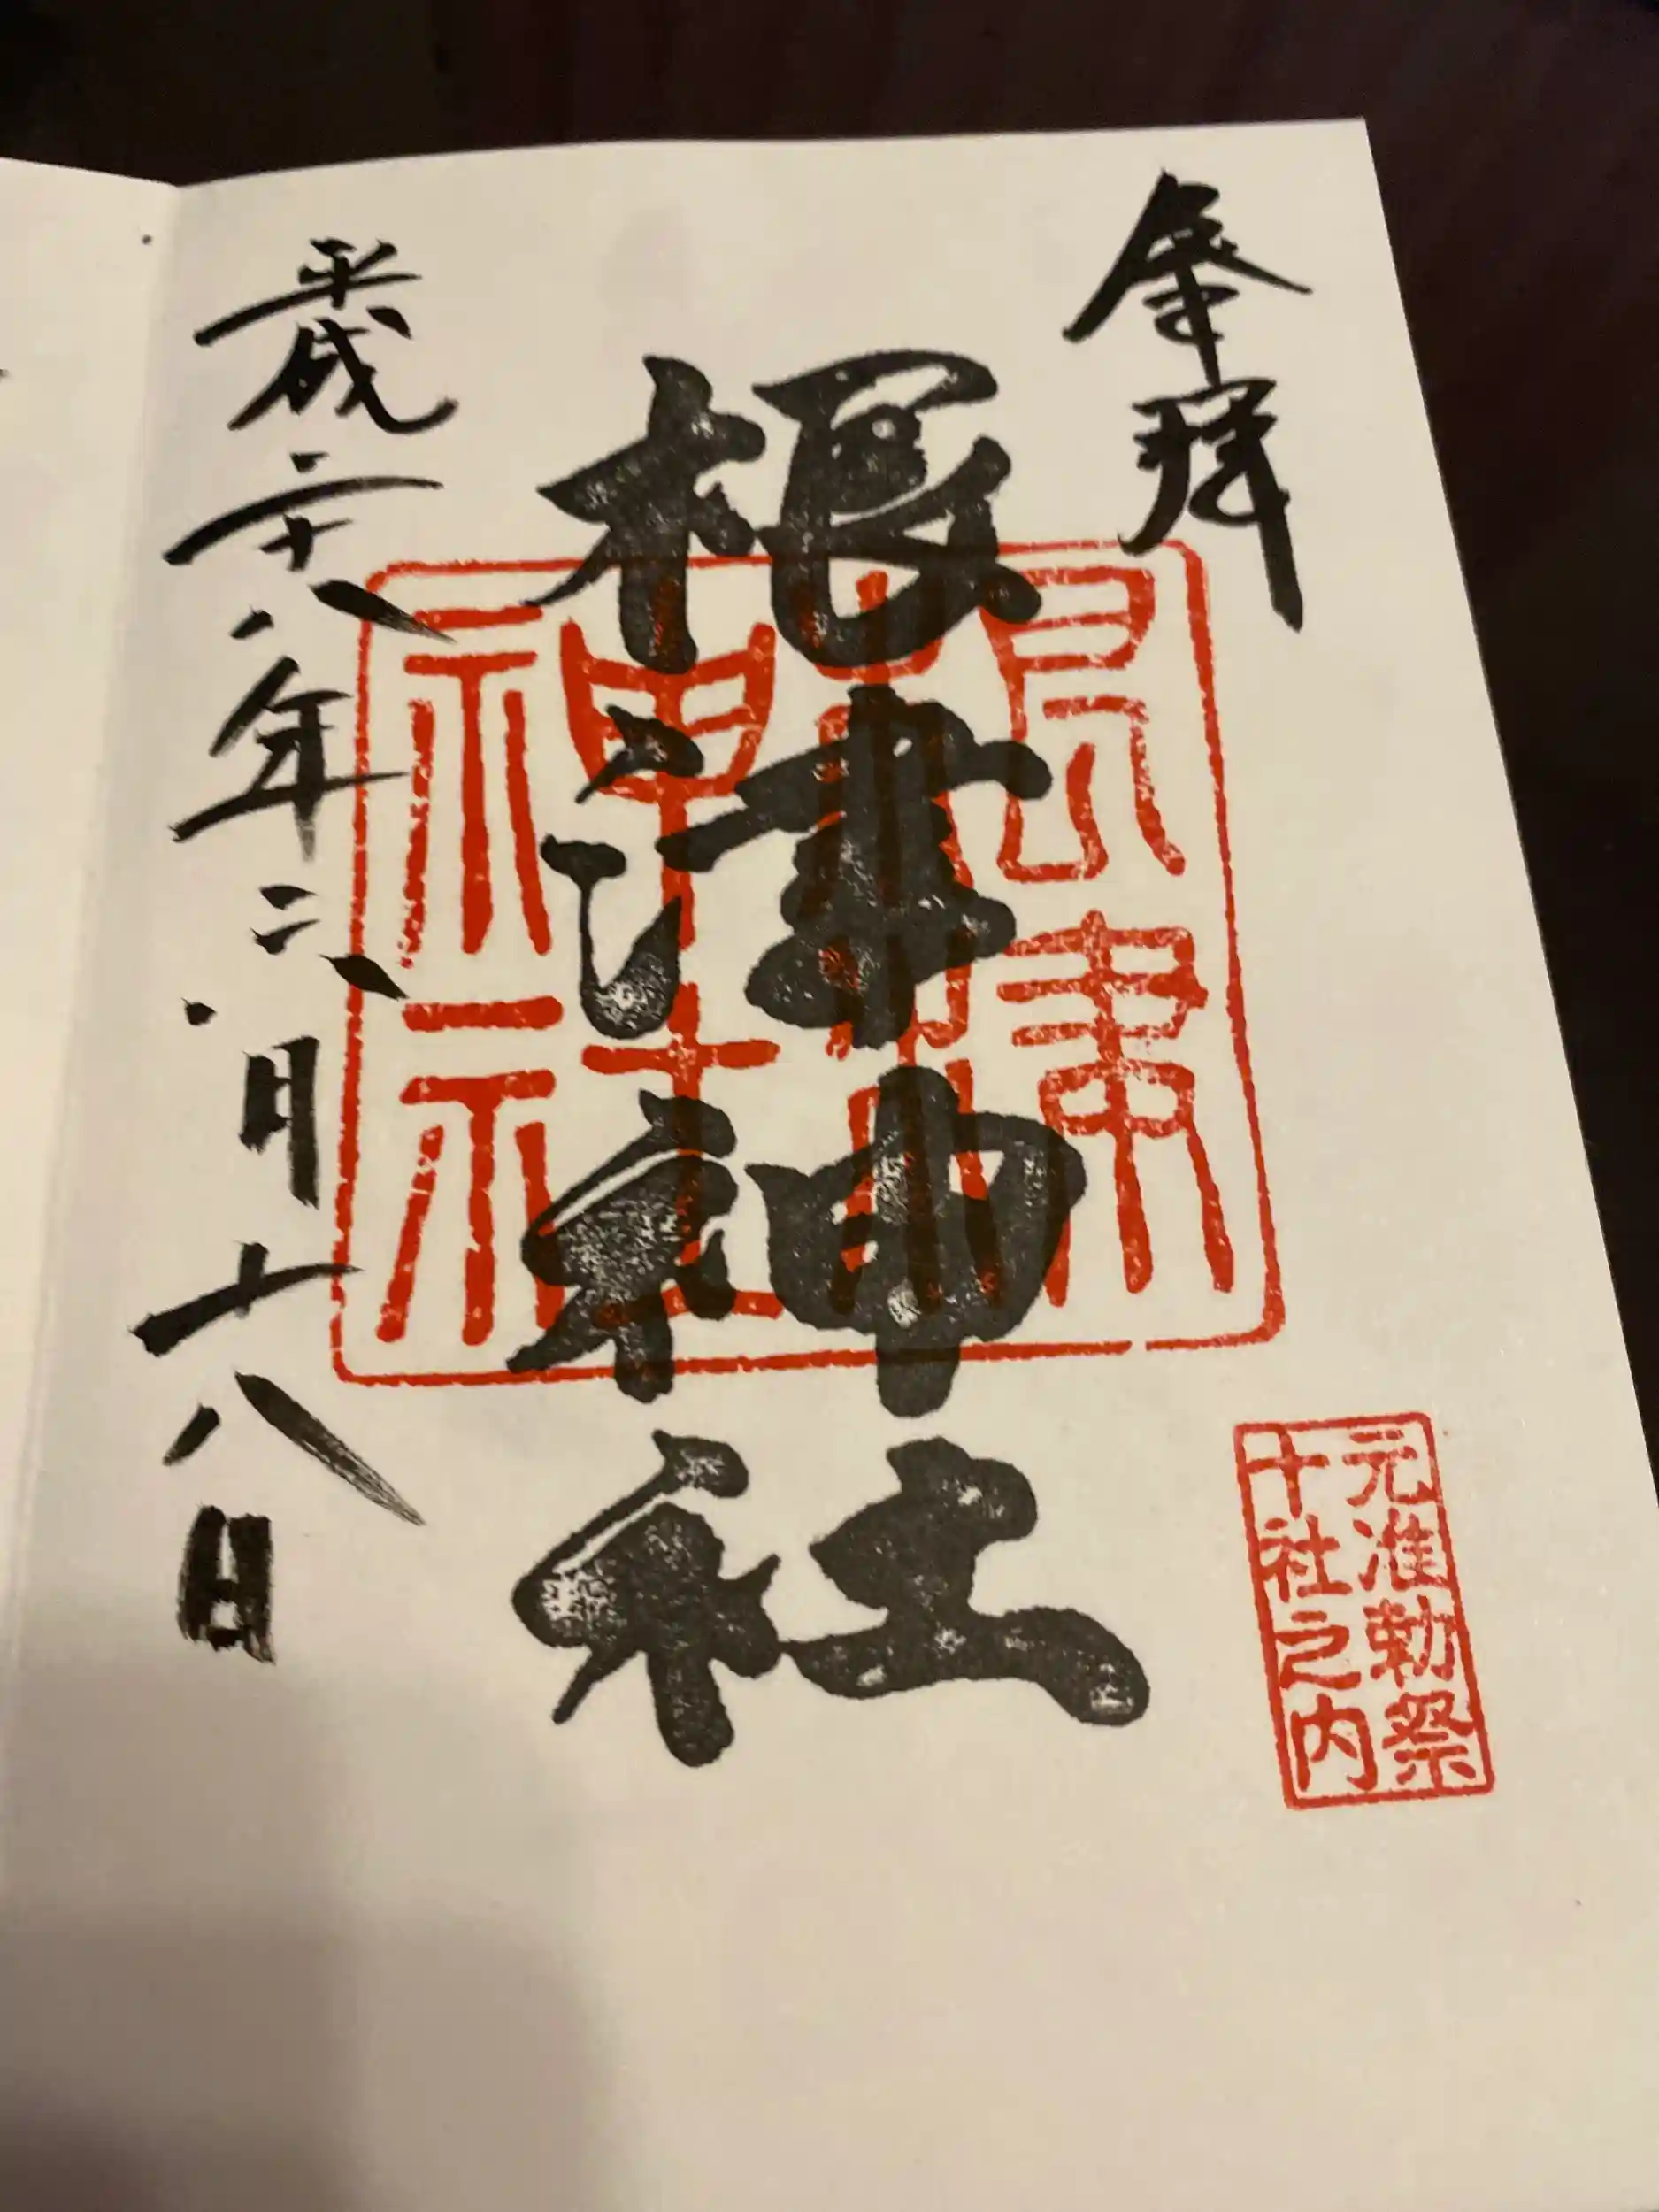 奉拝
根津神社
根津神社
元准勅祭
十社之内
平成二十八年六月十八日